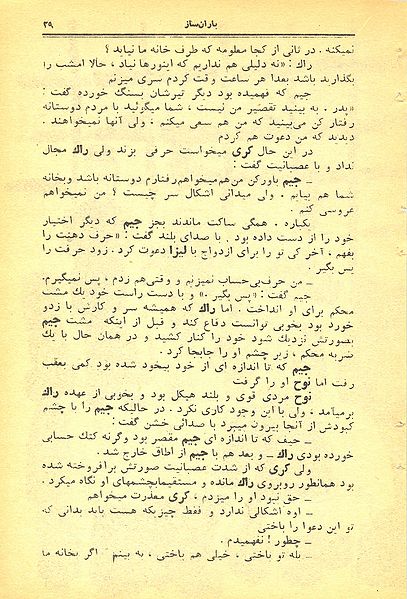 باران‌ساز ۳۹
نمیکنه . در ثانی از کجا معلومه که طرف خانه ما نیاید ؟
راك : «نه دلیلی هم نداریم که اینورها نیاد ، حالا امشب را
بگذارید باشد بعدا هر ساعت وقت کردم سری میزنم
جیم که فهمیده بود دیگر تیرشان بسنگ خورده گفت :
«پدر . به بینید تقصیر من نیست ، شما میگوئید با مردم دوستانه
رفتار کن می‌بینید که من هم سعی میکنم ، ولی آنها نمیخواهند .
دیدید که من دعوت هم کردم
در این حال کری میخواست حرفی بزند ولی راك مجال
نداد و با عصبانیت گفت :
ـ جیم باورکن من‌هم‌میخواهم‌رفتارم دوستانه باشد وبخانه
شما هم بیایم . ولی میدانی اشکال سر چیست ؟ من نمیخواهم
عروسی کنم .
یکباره . همگی ساکت ماندند بجز جیم که دیگر اختیار
خود را از دست داده بود . با صدای بلند گفت : «حرف دهنت را
بفهم ، آخر کی تو را برای ازدواج با لیزا دعوت کرد . زود حرفت را
پس بگیر .
ـ من حرف‌بی‌حساب نمیزنم و وقتی‌هم زدم ، پس نمیگیرم.
جیم گفت : «پس بگیر .» و با دست راست خود یك مشت
محکم برای او انداخت . اما راك که همیشه سر و کارش با زدو
خورد بود بخوبی توانست دفاع کند و قبل از اینکه مشت جیم
بصورتش نزدیك شود خود را کنار کشید و در همان حال با یك
ضربه محکم ، زیر چشم او را جابجا کرد .
جیم که تا اندازه ای از خود بیخود شده بود کمی بعقب
رفت اما نوح او را گرفت
نوح مردی قوی و بلند هیکل بود و بخوبی از عهده راك
برمیآمد ، ولی با این وجود کاری نکرد . در حالیکه جیم را با چشم
کبودش از آنجا بیرون میبرد با صدائی خشن گفت :
ـ حیف که تا اندازه ای جیم مقصر بود وگرنه کتك حسابی
خورده بودی راك ـ و بعد هم با جیم از اطاق خارج شد .
ولی کری که از شدت عصبانیت صورتش برافروخته شده
بود همانطور روبروی راك مانده و مستقیمابچشمهای او نگاه میکرد .
ـ حق نبود او را میزدم ، کری معذرت میخواهم
ـ اوه اشکالی ندارد و فقط چیزیکه هست باید بدانی که
تو این دعوا را باختی
ـ چطور ! نفهمیدم .
ـ بله تو باختی ، خیلی هم باختی ، به بینم اگر بخانه ما